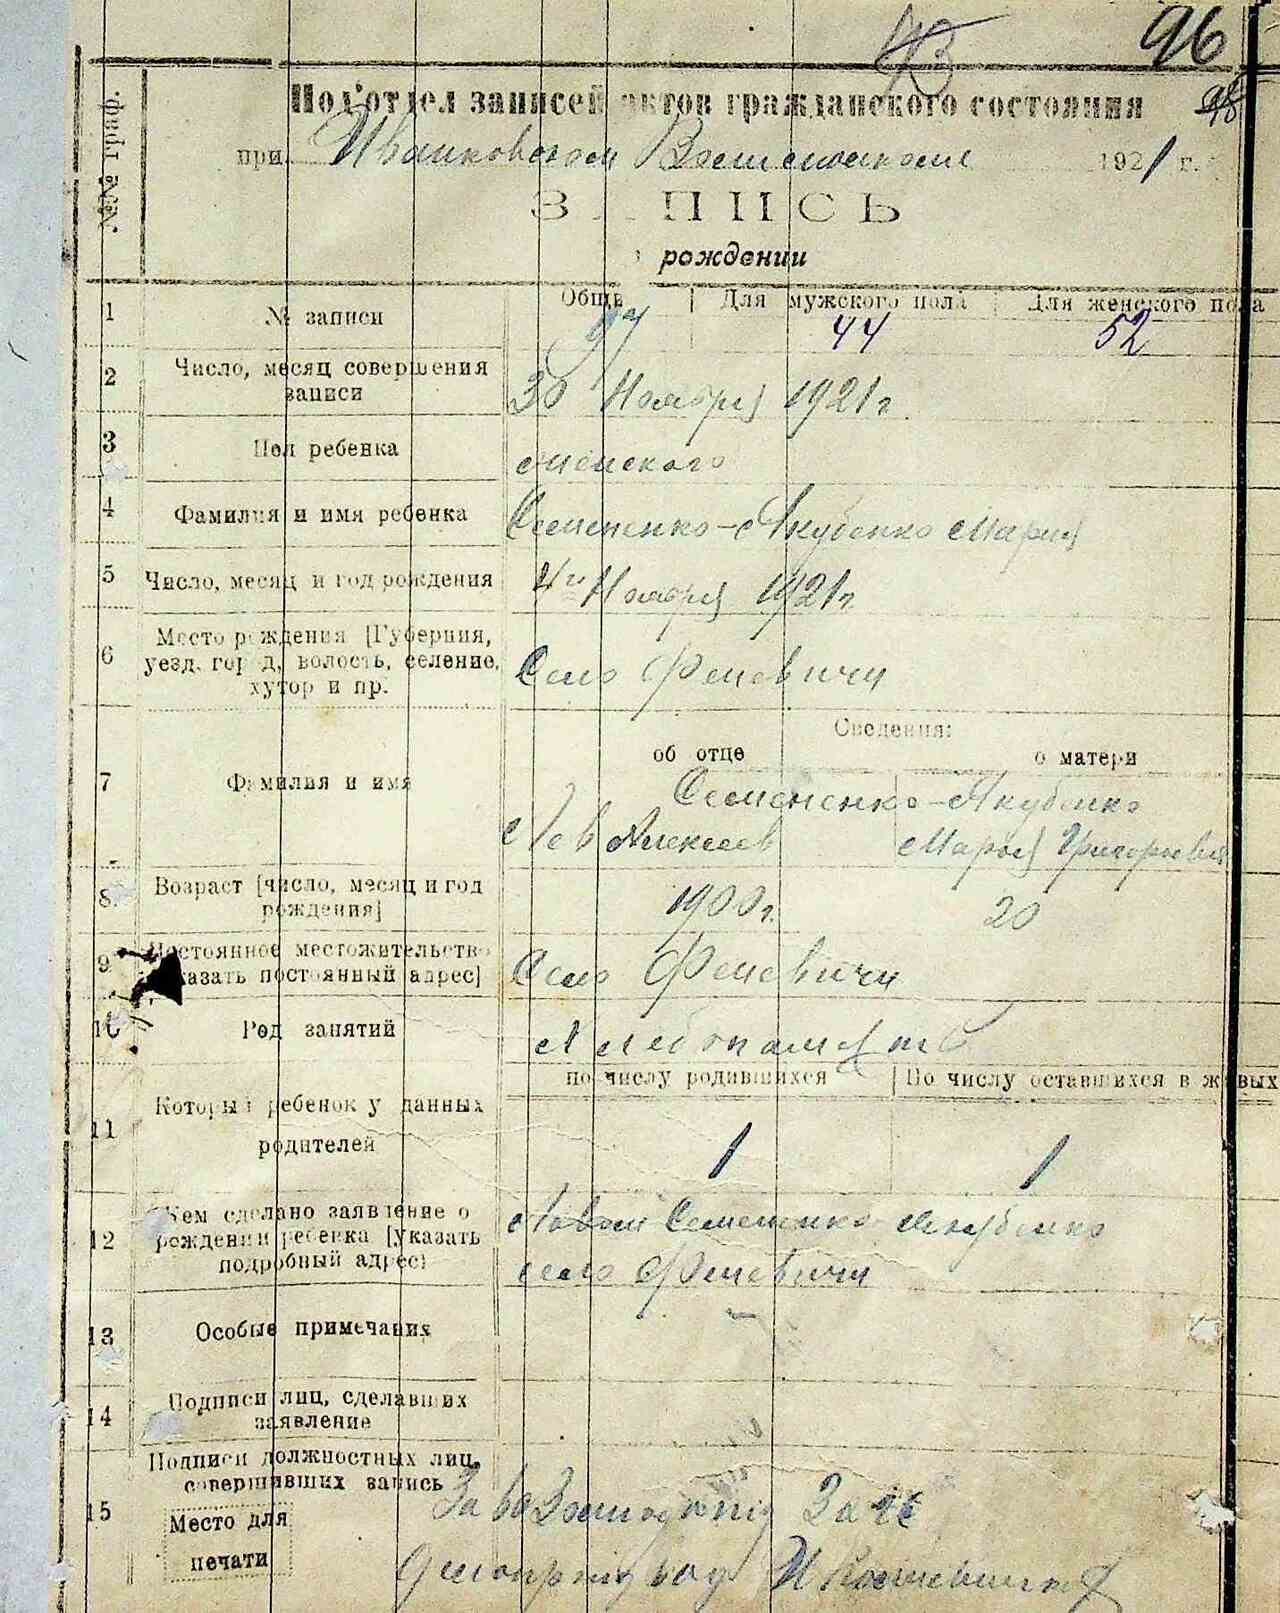 93
96
98
№№ граф.
Под'отдел записей актов гражданского состояния
при Иванковском Волисполкоме 1921 г.
ЗАПИСЬ
о рождении
1 № записи Общий Для мужского пола Для женского пола
97 44 52
2 Число, месяц совершения
записи
30 Ноября 1921 г.
3 Пол ребенка женского
4 Фамилия и имя ребенка Семененко-Якубенко Мария
5 Число, месяц и год рождения 4го Ноября 1921 г.
6 Место рождения [Губерния,
уезд, город, волость, селение,
хутор и пр.
Село Феневичи
Сведения:
об отце о матери
7 Фамилия и имя
Семененко-Якубенко
Лев Алексеев Мария Григорьевна
8 Возраст [число, месяц и год
рождения]
1900 г. 20
9 Постоянное местожительство
указать постоянный адрес]
Село Феневичи
10 Род занятий Хлебопашество
по числу родившихся По числу оставшихся в живых
11 Который ребенок у данных
родителей
1 1
12 Кем сделано заявление о
рождении ребенка [указать
подробный адрес]
Львом Семененко Якубенко
село Феневичи
13 Особые примечания
14 Подписи лиц, сделавших
заявление
15 Подписи должностных лиц,
совершивших запись
Место для
печати